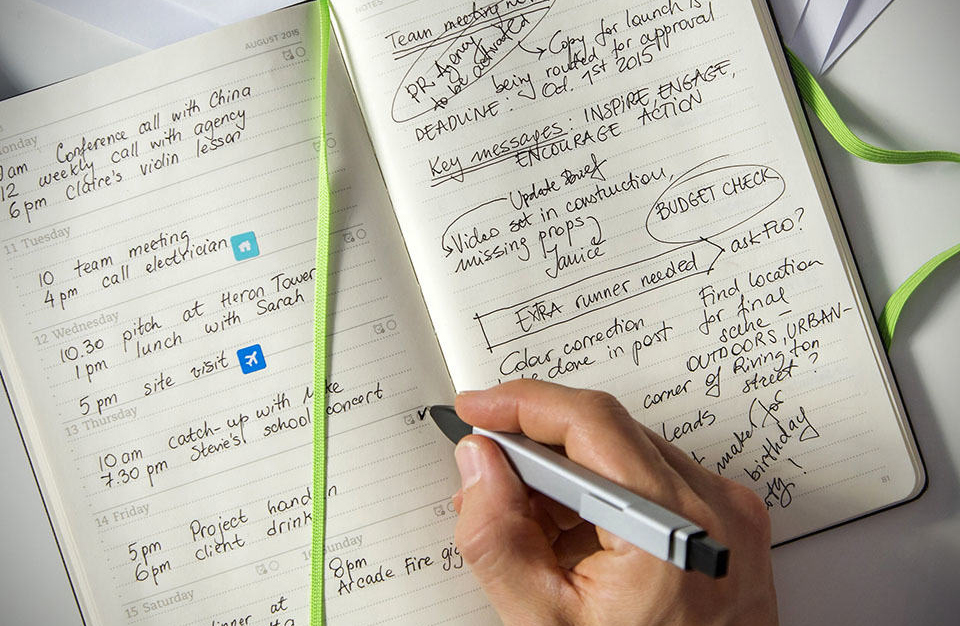 AUGUST 2015
Conference call with China
12 weekly call with agency
6pm Claire's violin lesson
11 Tuesday
10 team meeting
4pm call electrician
12 Wednesday
10.30 pitch at Heron Tower
1pm lunch with Sarah
5pm site visit
13 Thursday
10am catch-up with
7.30pm Steve's school concert
14 Friday
5pm Project hand in
6pm client drink
15 Saturday
at
8pm
Arcade Fire gig
NOTES
Team meeting
PR Agency
to be activated
Copy for launch is
being routed for approval
DEADLINE: Oct. 1st 2015
Key messages: INSPIRE, ENGAGE,
ENCOURAGE ACTION
Update Brief
Video set in construction,
missing props?
Janice
BUDGET CHECK
EXTRA runner needed
ask Foo?
Colour correction
be done in post
Find location
for final
scene -
OUTDOORS, URBAN-
corner of Rivington
street?
Leads
make for
birthday
81